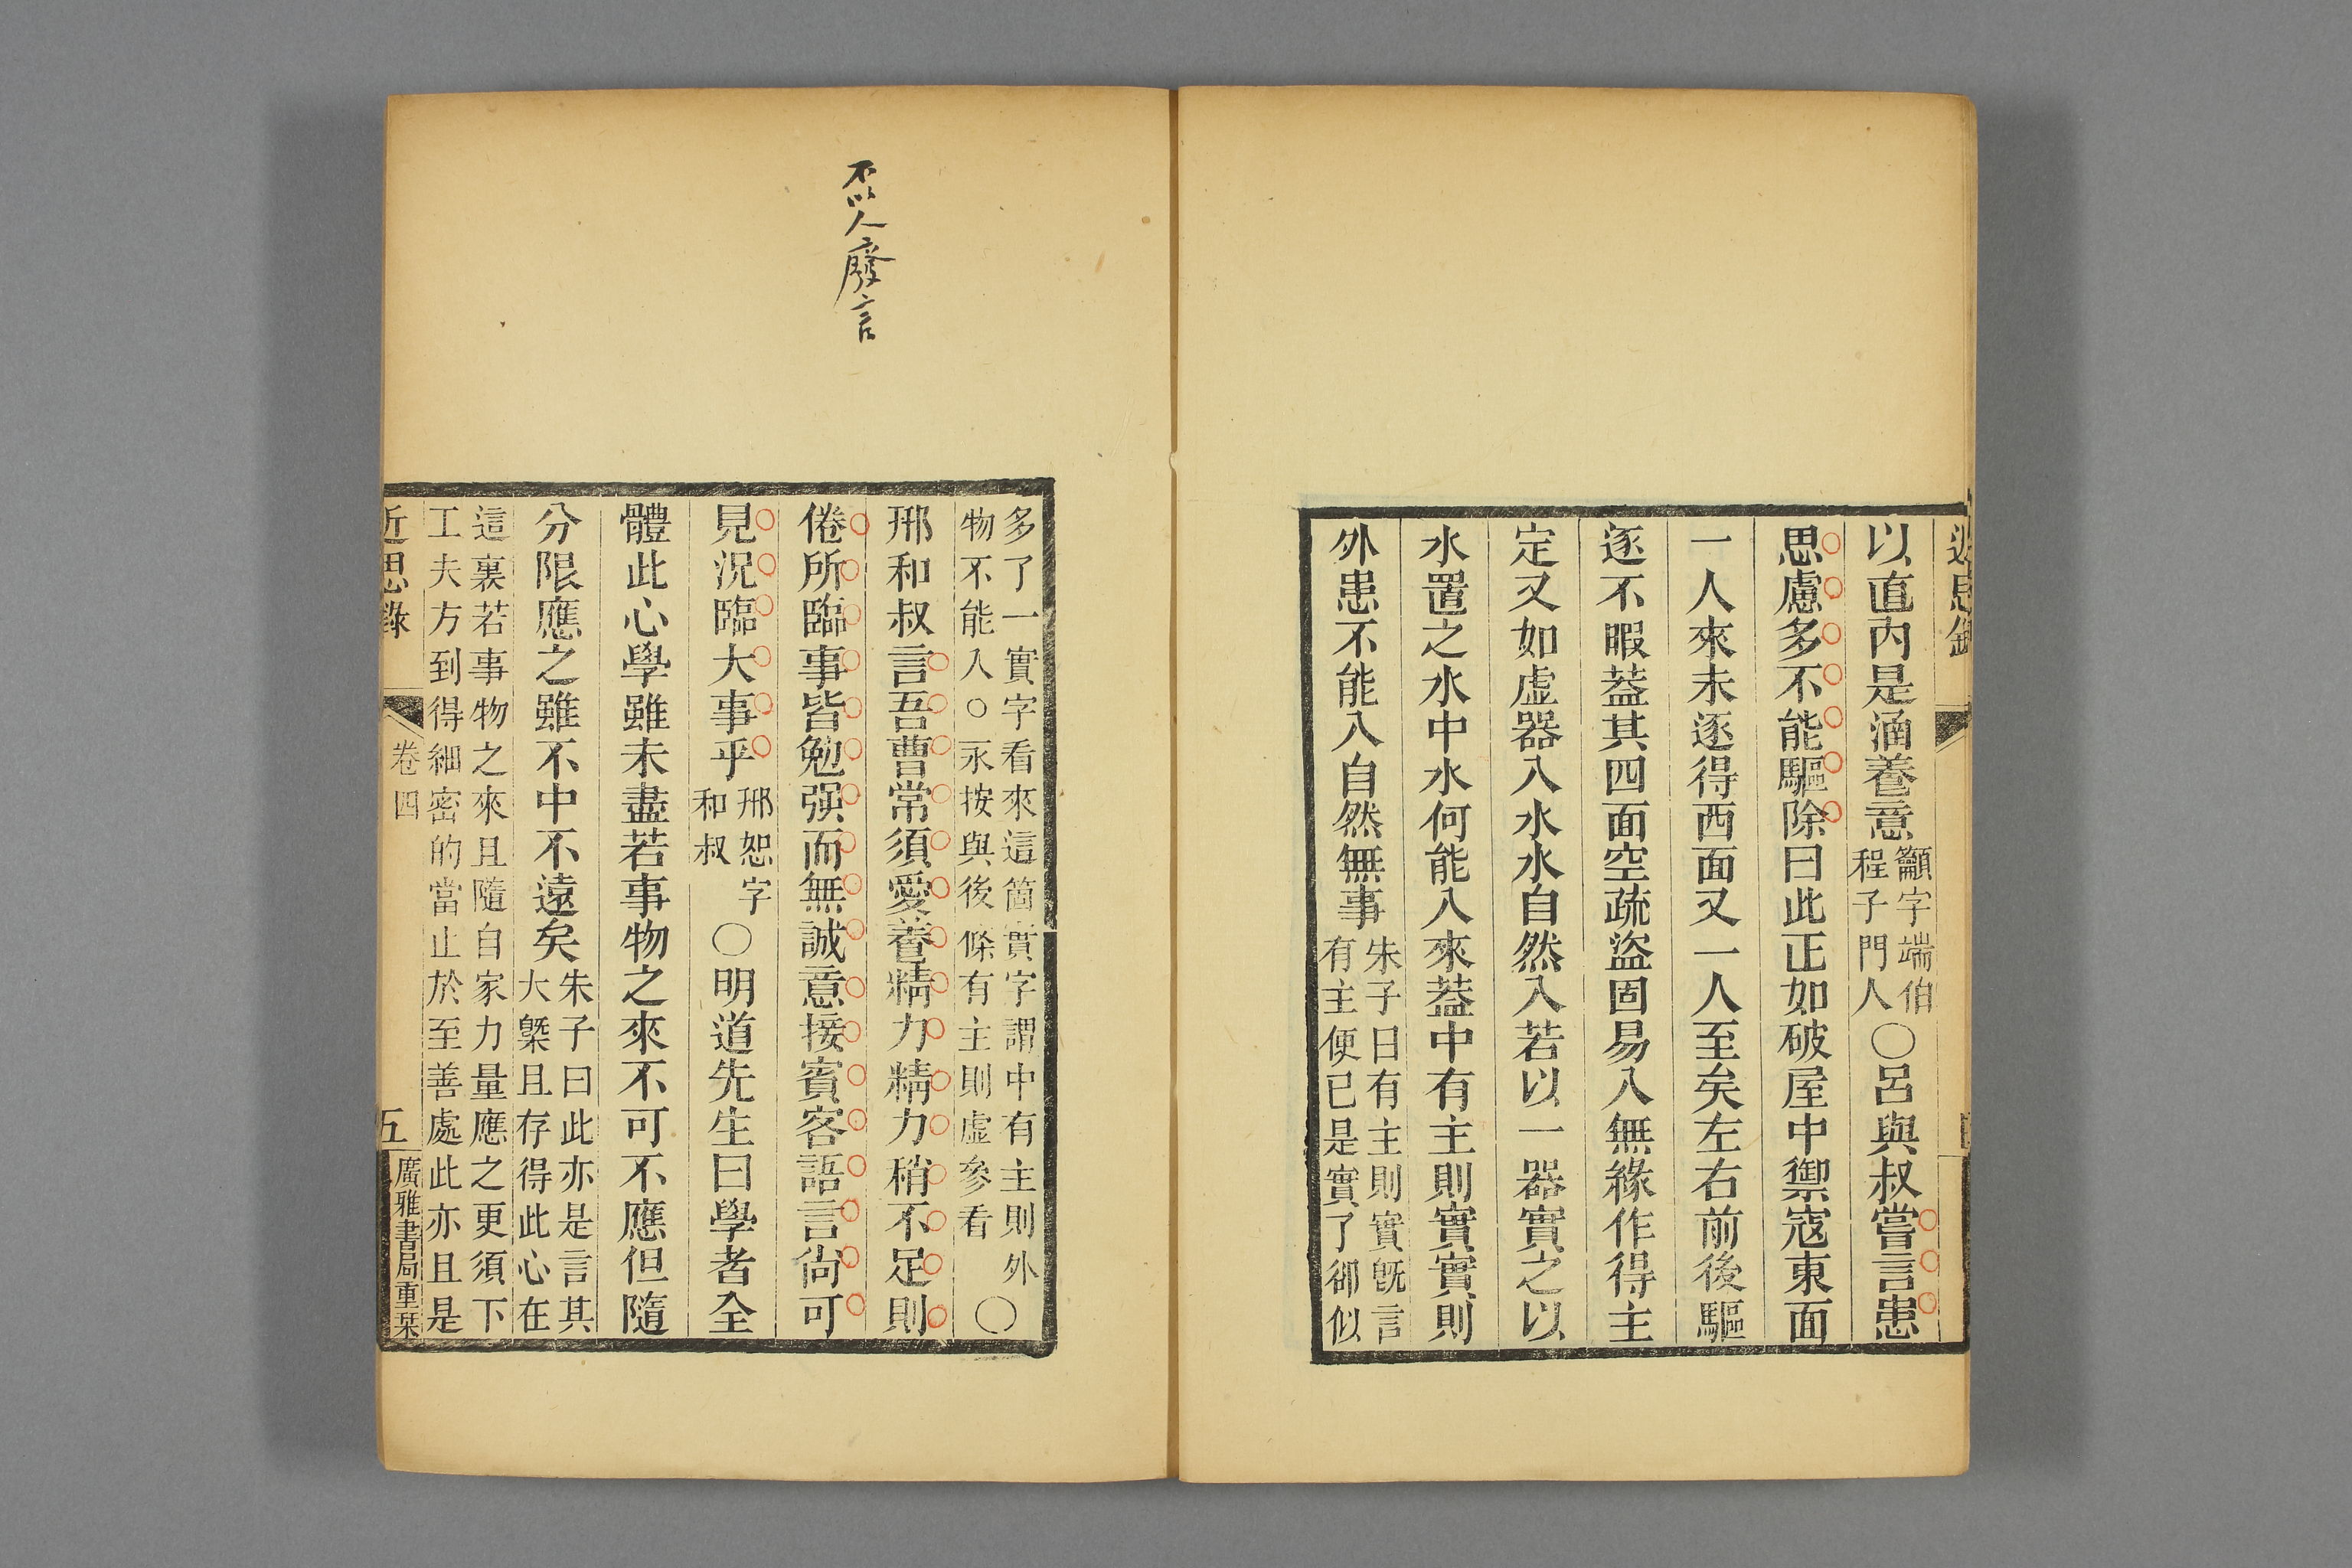 近思錄
以直內是涵養意
籲字端伯
程子門人
〇呂與叔嘗言患
思慮多不能驅除曰此正如破屋中禦寇東面
一人來未逐得西面又一人至矣左右前後驅
逐不暇蓋其四面空疏盜固易入無緣作得主
定又如虛器入水水自然入若以一器實之以
水置之水中水何能入來蓋中有主則實實則
外患不能入自然無事
朱子曰有主則實旣言
有主便已是實了卻似
不以人廢言
多了一實字看來這箇實字謂中有主則外
物不能入○永按與後條有主則虛參看
〇
邢和叔言吾曹常須愛養精力精力稍不足則
倦所臨事皆勉强而無誠意接賓客語言尙可
見況臨大事乎
邢恕字
和叔
〇明道先生曰學者全
體此心學雖未盡若事物之來不可不應但隨
分限應之雖不中不遠矣
朱子曰此亦是言其
大槩且存得此心在
這裏若事物之來且隨自家力量應之更須下
工夫方到得細密的當止於至善處此亦且是
近思錄
卷四
五
廣雅書局重栞